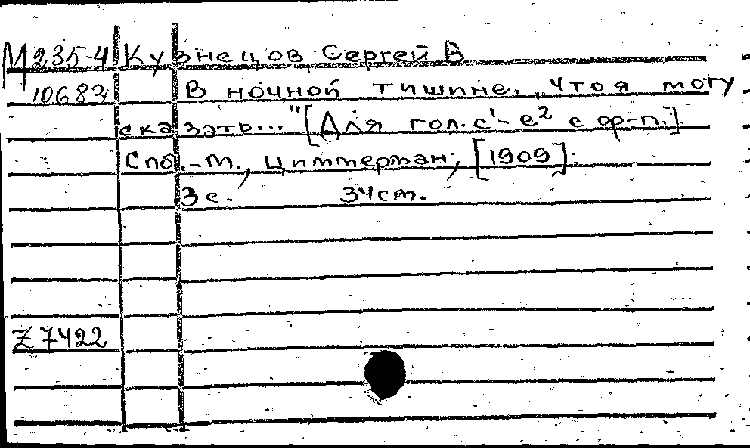 М 235-4 Кузнецов Сергей В
10683 В ночной тишине. „Что я могу
сказать..." [Для гол. c'-e² с ф-п.]
Спб.-М., Циммерман, [1909].
3 с. 34 см.
Z 7422